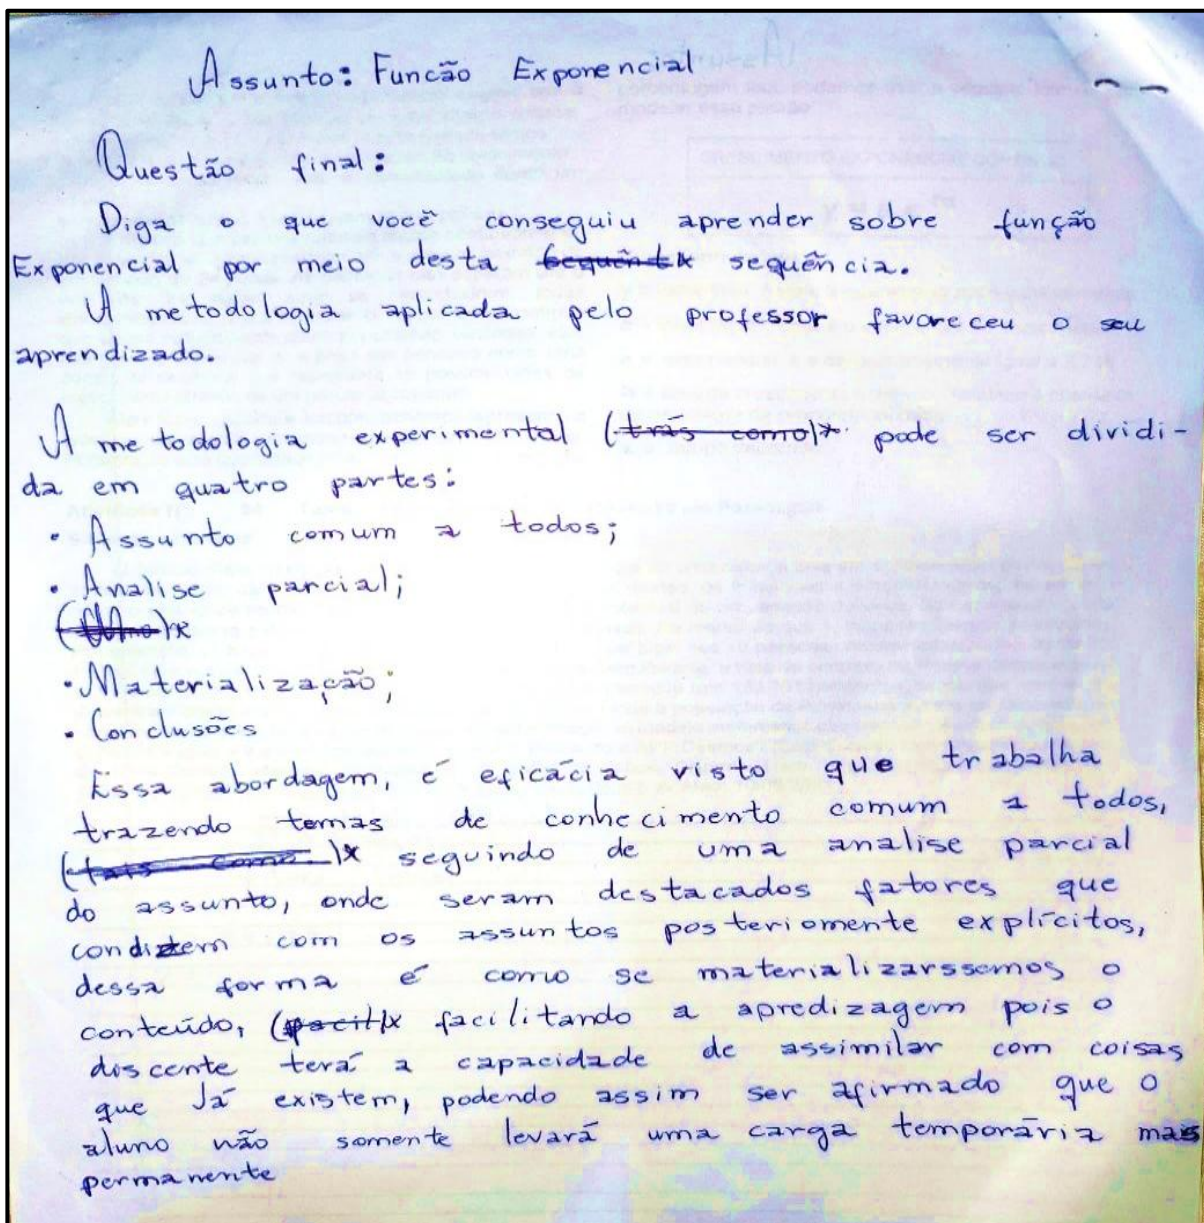 Assunto: Funcão Exponencial
Questão final:
Diga o que você conseguiu aprender sobre função
Exponencial por meio desta sequência.
A metodologia aplicada pelo professor favoreceu o seu
aprendizado.
A metodologia experimental (trás como)* pode ser dividi-
da em quatro partes:
• Assunto comum a todos;
• Analise parcial;
• Materialização;
• Conclusões
Essa abordagem, é eficácia visto que trabalha
trazendo temas de conhecimento comum a todos,
(tais como )* seguindo de uma analise parcial
do assunto, onde seram destacados fatores que
condizem com os assuntos posteriomente explícitos,
dessa forma é como se materializarssemos o
conteúdo, (facit)* facilitando a apredizagem pois o
discente terá a capacidade de assimilar com coisas
que Já existem, podendo assim ser afirmado que o
aluno não somente levará uma carga temporária mas
permanente